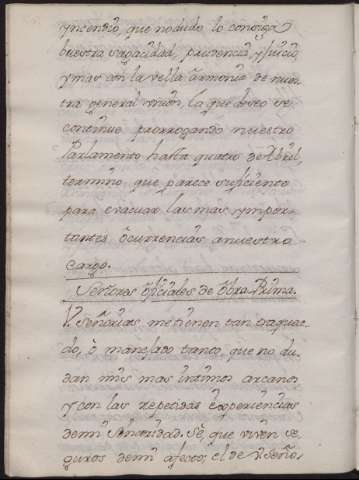 yncendio, que no dudo lo consiga
buestra sagacidad, prudencia, y juicio,
y mas con la vella armonia de nues-
tra general union, la que deseo se
continue prorrogando nuestro
Parlamento hasta quatro de Abril,
termino que parece suficiente
para evacuar las mas ympor-
tantes ocurrencias a nuestro
cargo.
Señores oficiales de obra Prima.
V. Señorias, me tienen tan
do, ó manejado tanto, que no du-
dan mis mas intimos arcanos,
y con las repetidas experiencias
de mi sinceridad. Sé, que viven se-
guros de mi afecto; el de V. Seño-